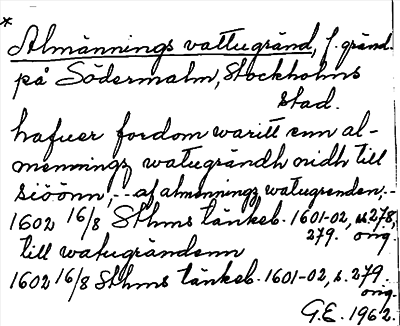 *
Almännings vattugränd, f. gränd
på Södermalm, Stockholms
stad.
hafuer fordom waritt enn al-
menningz watugrändh nidh till
siöönn, - - af almenningz watugrenden. -
1602 16/8 Sthms tänkeb. 1601-02, s. 278,
279. orig.
till watugrändenn
1602 16/8 Sthms tänkeb. 1601-02, s. 279.
orig.
G.E. 1962.